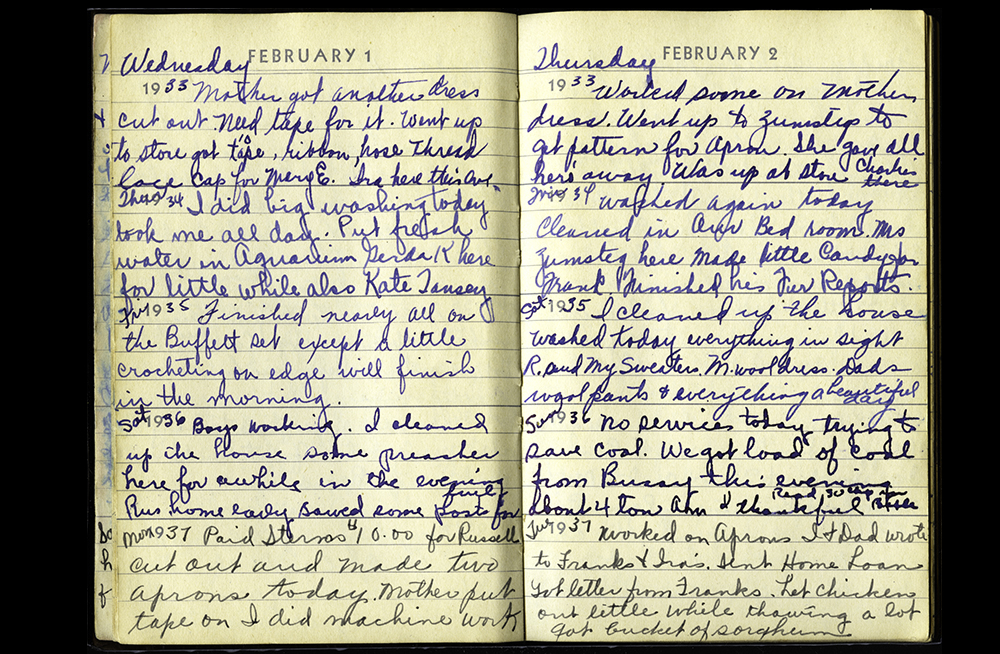 Wednesday
FEBRUARY 1
1933 Mother got another dress
cut out need tape for it. Went up
to store got tape, ribbon, hose Thread
lace cap for Mary E. Ira here this eve.
Thur 1934 I did big washing today
took me all day. Put fresh
water in Aquarium Gerda K here
for little while also Kate Tansey
Fri 1935 Finished nearly all on
the Buffett set except a little
crocheting on edge will finish
in the morning.
Sat 1936 Boys working. I cleaned
up the house some preacher
here for awhile in the evening
Rus home early sawed some posts for
fuel
Mon 1937 Paid Sterns $10.00 for Russell
cut out and made two
aprons today. Mother put
tape on I did machine work
Thursday
FEBRUARY 2
1933 Worked some on Mother
dress. Went up to Zumstegs to
get pattern for Apron. She gave all
hers away Was up at store Charlies
there
Fri 1934 Washed again today
Cleaned in our Bed room. Mrs
Zumsteg here Made little Candy for
Frank Finished his Reports.
Sat 1935 I cleaned up the house
washed today everything in sight
R. and My Sweaters. M. wool dress. Dads
wool pants & everything a beautiful
day
Sun 1936 No services today trying to
save coal. We got load of coal
from Bussy this evening
about 4 ton Am I thankful
Tue 1937 Worked on Aprons I & Dad wrote
to Franks & Ira's. Sent Home Loan
Got letter from Franks. Let chicken
out little while thawing a lot
got bucket of sorghum